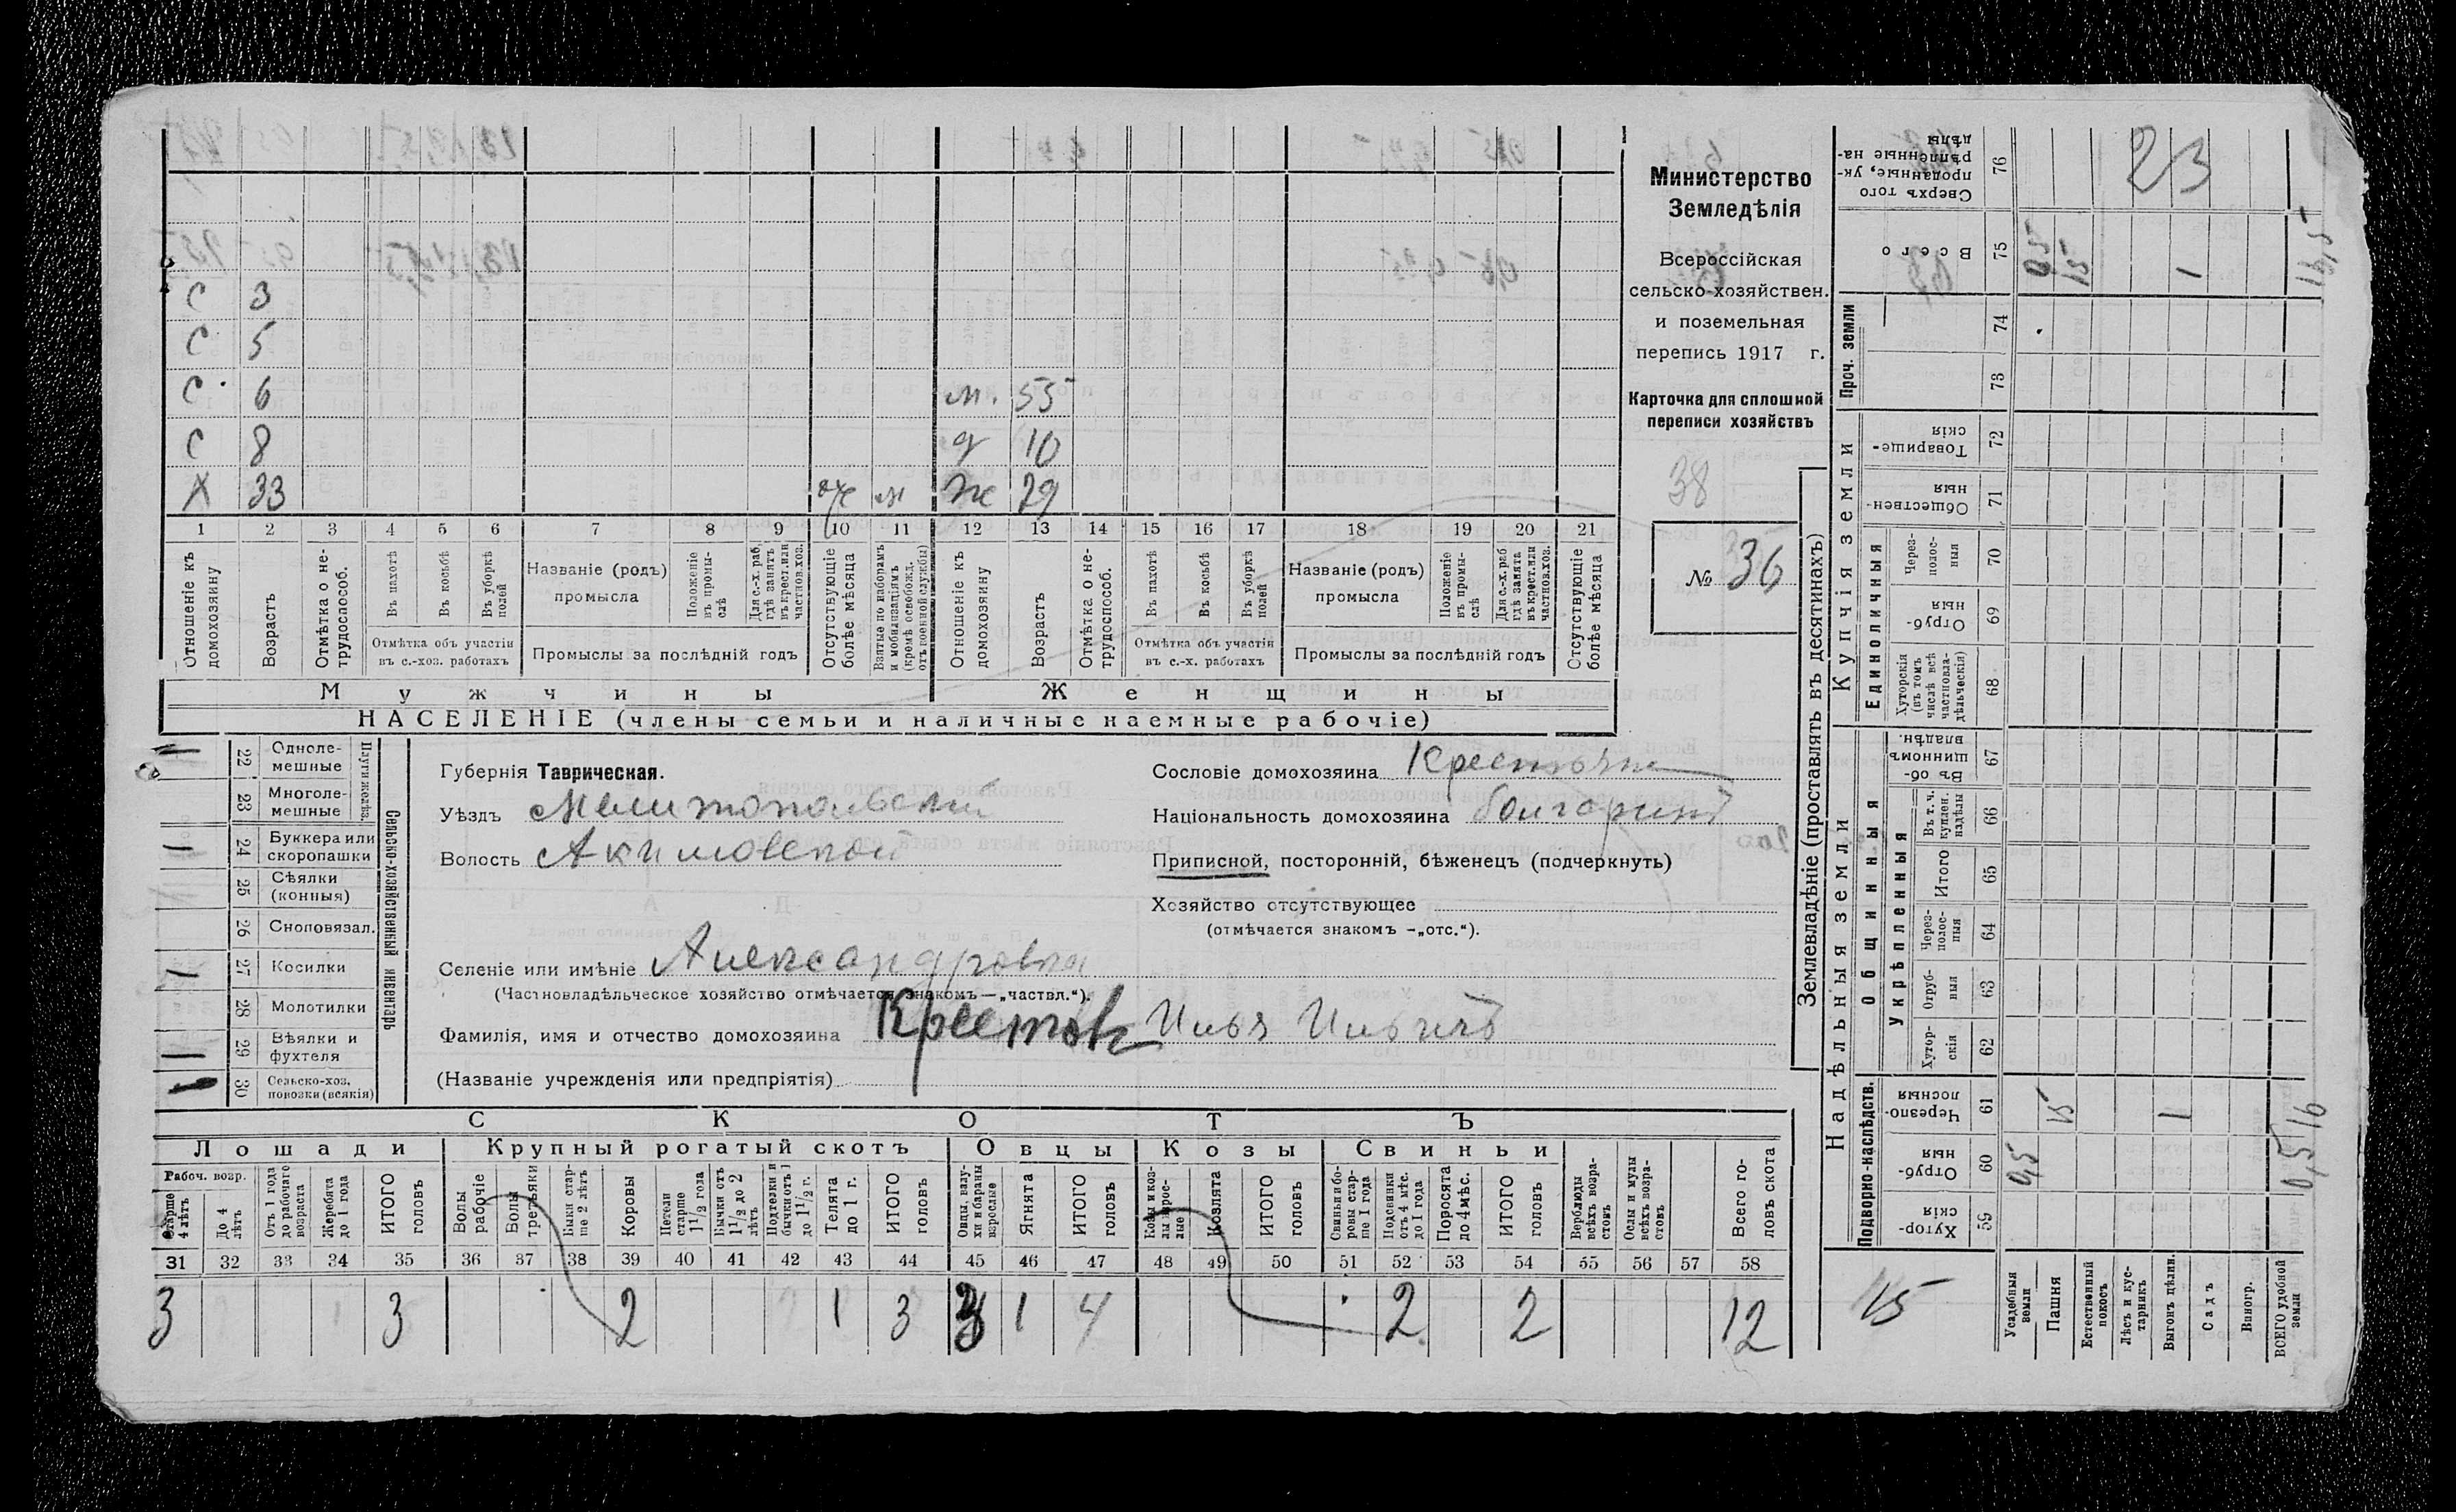 С 3
С 5
С 6 м. 55
С 8 д 10
Х 33 м ж 29
1 2 3 4 5 6 7 8 9 10 11 12 13 14 15 16 17 18 19 20 21
Отношеніе къ домохозяину
Возрастъ
Отмѣтка о нетрудоспособ.
Въ пахотѣ
Въ косьбѣ
Въ уборкѣ полей
Отмѣтка объ участіи
въ с.-хоз. работахъ
Названіе (родъ)
промысла
Положеніе въ промы-слѣ
Для с.-х. раб. гдѣ занятъ въ крест. или частнов. хоз.
Промыслы за послѣдній годъ
Отсутствующіе болѣе мѣсяца
Взятые по наборамъ и мобилизаціямъ (кромѣ освобожд. отъ военной службы)
Отношеніе къ домохозяину
Возрастъ
Отмѣтка о не-трудоспособ.
Въ пахотѣ
Въ косьбѣ
Въ уборкѣ полей
Отмѣтка объ участіи
въ с.-х. работахъ
Названіе (родъ)
промысла
Положеніе въ промы-слѣ
Для с.-х. раб гдѣ занята въ крест. или частнов. хоз.
Промыслы за послѣдній годъ
Отсутствующіе болѣе мѣсяца
Мужчины Женщины
НАСЕЛЕНІЕ (члены семьи и наличные наемные рабочіе)
Министерство
Земледѣлія
Всероссійская
сельско-хозяйствен.
и поземельная
перепись 1917 г.
Карточка для сплошной
переписи хозяйствъ
38
№ 36
Сельско-хозяйственный инвентарь
22 Одноле-мешные
23 Многоле-мешные
1 24 Буккера или скоропашки
25 Сѣялки (конныя)
26 Сноповязал.
1 27 Косилки
28 Молотилки
1 29 Вѣялки и фухтеля
1 30 Сельско-хоз. повозки (всякія)
Губернія Таврическая.
Уѣздъ Мелитопольскій
Волость Акимовской
Селеніе или имѣніе Александровка
(Частновладѣльческое хозяйство отмѣчается знакомъ—„частвл.“).
Фамилія, имя и отчество домохозяина Крестовъ Илья Ильичъ
(Названіе учрежденія или предпріятія)
Сословіе домохозяина Крестьяне
Національность домохозяина болгаринъ
Приписной, посторонній, бѣженецъ (подчеркнуть)
Хозяйство отсутствующее
(отмѣчается знакомъ -„отс.“).
СКОТЪ
Лошади Крупный рогатый скотъ Овцы Козы Свиньи
Рабоч. возр.
Старше 4 лѣтъ
До 4 лѣтъ
Отъ 1 года до рабочаго возраста
Жеребята до 1 года
ИТОГО головъ
Волы рабочіе
Волы третьяки
Быки стар-ше 2 лѣтъ
Коровы
Нетели старше 1 1/2 года
Бычки отъ 1 1/2 до 2 лѣтъ
Подтелки и бычки отъ 1 до 1 1/2 г.
Телята до 1 г.
ИТОГО головъ
Овцы, валу-хи и бараны взрослые
Ягнята
ИТОГО головъ
Козы и коз-лы взрос-лые
Козлята
ИТОГО головъ
Свиньи и бо-ровы стар-ше 1 года
Подсвинки отъ 4 мѣс. до 1 года
Поросята до 4 мѣс.
ИТОГО головъ
Верблюды всѣхъ возра-стовъ
Ослы и мулы всѣхъ возра-стовъ
Всего го-ловъ скота
31 32 33 34 35 36 37 38 39 40 41 42 43 44 45 46 47 48 49 50 51 52 53 54 55 56 57 58
3 3 2 1 3 3 1 4 2 2 12
Землевладѣніе (проставлять въ десятинахъ)
Надѣльныя земли Купчія земли Проч. земли
Подворно-наслѣдств.
Общинныя
Укрѣпленныя
Единоличныя
Хутор-скія 59
Отруб-ныя 60
Черезпо-лосныя 61
Хутор-скія 62
Отруб-ныя 63
Через-полос-ныя 64
Итого 65
Въ т. ч. куплен. надѣлы 66
Въ об-щинномъ владѣн. 67
Хуторскія (въ томъ числѣ всѣ частновла-дѣльческія) 68
Отруб-ныя 69
Через-полос-ныя 70
Обществен-ныя 71
Товарище-скія 72
73
74
Всего 75
Сверхъ того проданные, ук-рѣпленные на-дѣлы 76
Усадебныя земли
Пашня
Естественный покосъ
Лѣсъ и кус-тарникъ
Выгонъ дѣлин.
Садъ
Виногр.
ВСЕГО удобной земли
15
0,5
15
1
0,5 16
0,5
15
1
23